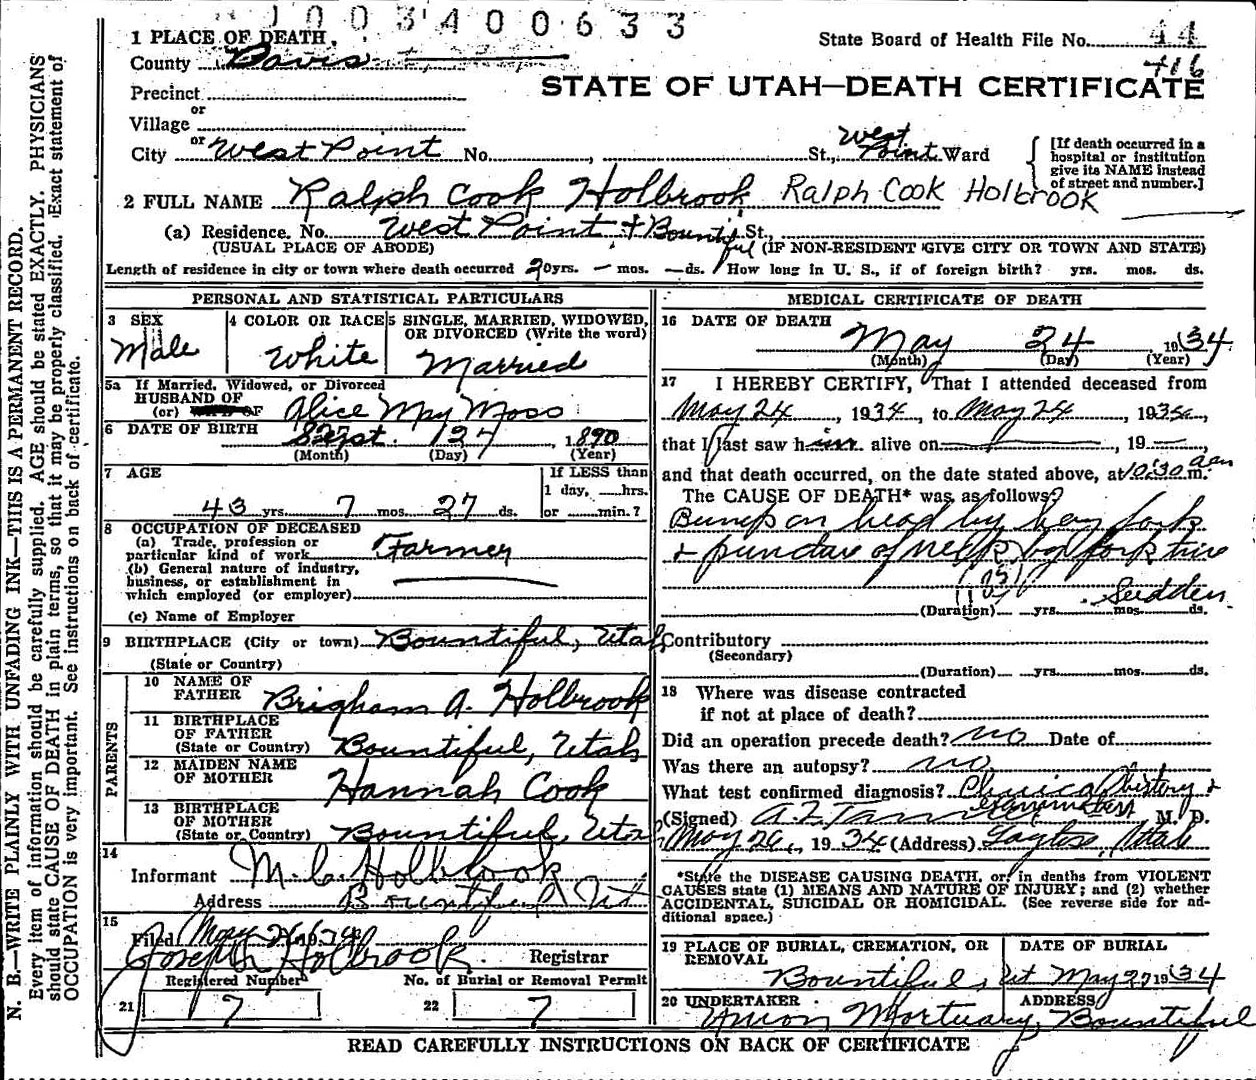 1003400633
1 PLACE OF DEATH
State Board of Health File No. 44
County Davis
716
STATE OF UTAH—DEATH CERTIFICATE
Precinct
or
Village
or
City West Point No. , St., West Point Ward
[If death occurred in a hospital or institution give its NAME instead of street and number.]
2 FULL NAME Ralph Cook Holbrook Ralph Cook Holbrook
(a) Residence. No. West Point & Bountiful St.,
(USUAL PLACE OF ABODE) (IF NON-RESIDENT GIVE CITY OR TOWN AND STATE)
Length of residence in city or town where death occurred 20 yrs. — mos. — ds. How long in U. S., if of foreign birth? yrs. mos. ds.
PERSONAL AND STATISTICAL PARTICULARS
3 SEX
Male
4 COLOR OR RACE
White
5 SINGLE, MARRIED, WIDOWED, OR DIVORCED (Write the word)
Married
5a If Married, Widowed, or Divorced
HUSBAND OF
(or) OF Alice May Moss
6 DATE OF BIRTH Sept. 27, 1890
(Month) (Day) (Year)
7 AGE
43 yrs. 7 mos. 27 ds.
If LESS than
1 day, hrs.
or min.?
8 OCCUPATION OF DECEASED
(a) Trade, profession or
particular kind of work Farmer
(b) General nature of industry,
business, or establishment in
which employed (or employer)
(c) Name of Employer
9 BIRTHPLACE (City or town) Bountiful, Utah
(State or Country)
PARENTS
10 NAME OF FATHER Brigham A. Holbrook
11 BIRTHPLACE OF FATHER
(State or Country) Bountiful, Utah
12 MAIDEN NAME OF MOTHER Hannah Cook
13 BIRTHPLACE OF MOTHER
(State or Country) Bountiful, Utah
14
Informant M. C. Holbrook
Address Bountiful Ut
15
Filed May 26 1934
Joseph Holbrook Registrar
Registered Number No. of Burial or Removal Permit
21 7 22 7
MEDICAL CERTIFICATE OF DEATH
16 DATE OF DEATH
May 24 1934
(Month) (Day) (Year)
17 I HEREBY CERTIFY, That I attended deceased from
May 24, 1934, to May 24, 1934,
that I last saw him alive on , 19
and that death occurred, on the date stated above, at 10:30 a m.
The CAUSE OF DEATH* was as follows?
Bump on head by hay fork
& puncture of neck by fork tine
Sudden
(Duration) yrs. mos. ds.
Contributory
(Secondary)
(Duration) yrs. mos. ds.
18 Where was disease contracted
if not at place of death?
Did an operation precede death? no Date of
Was there an autopsy? no
What test confirmed diagnosis? Clinical history & examination
(Signed) A. Z. Tanner M. D.
May 26, 1934 (Address) Layton, Utah
*State the DISEASE CAUSING DEATH, or, in deaths from VIOLENT
CAUSES state (1) MEANS AND NATURE OF INJURY; and (2) whether
ACCIDENTAL, SUICIDAL OR HOMICIDAL. (See reverse side for ad-
ditional space.)
19 PLACE OF BURIAL, CREMATION, OR REMOVAL
Bountiful, Ut
DATE OF BURIAL
May 27 1934
20 UNDERTAKER
Union Mortuary
ADDRESS
Bountiful
READ CAREFULLY INSTRUCTIONS ON BACK OF CERTIFICATE
N. B.—WRITE PLAINLY WITH UNFADING INK—THIS IS A PERMANENT RECORD.
Every item of information should be carefully supplied. AGE should be stated EXACTLY. PHYSICIANS
should state CAUSE OF DEATH in plain terms, so that it may be properly classified. Exact statement of
OCCUPATION is very important. See instructions on back of certificate.